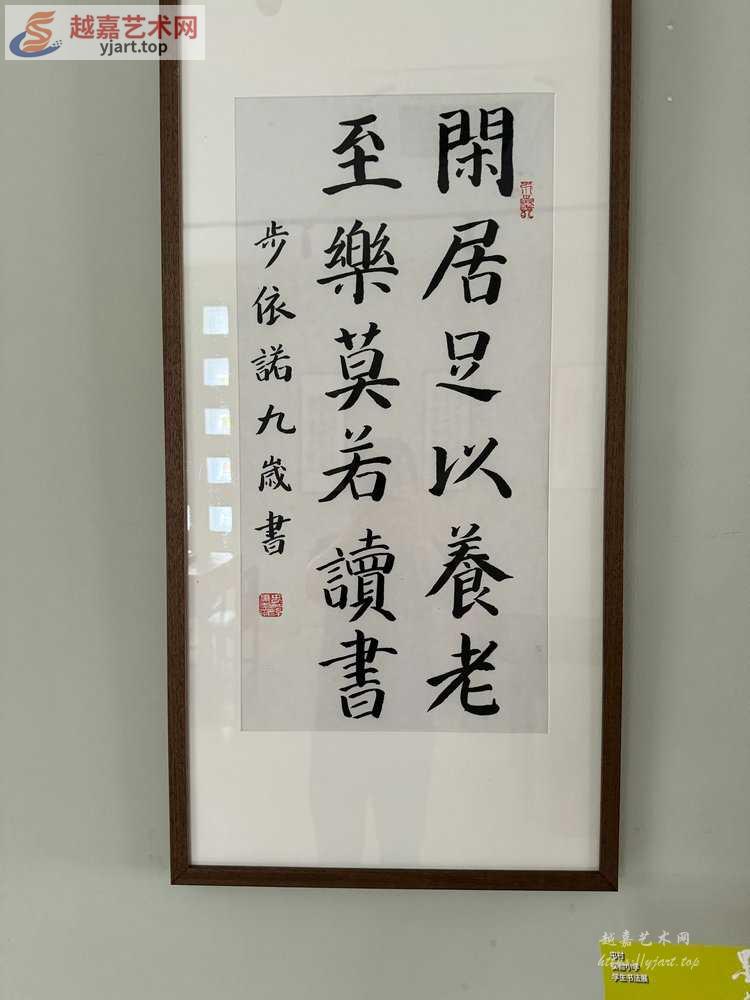 越嘉艺术网
yjart.top
閑居足以養老
至樂莫若讀書
步依諾九歲書
越嘉艺术网
https://yjart.top
学生书法展